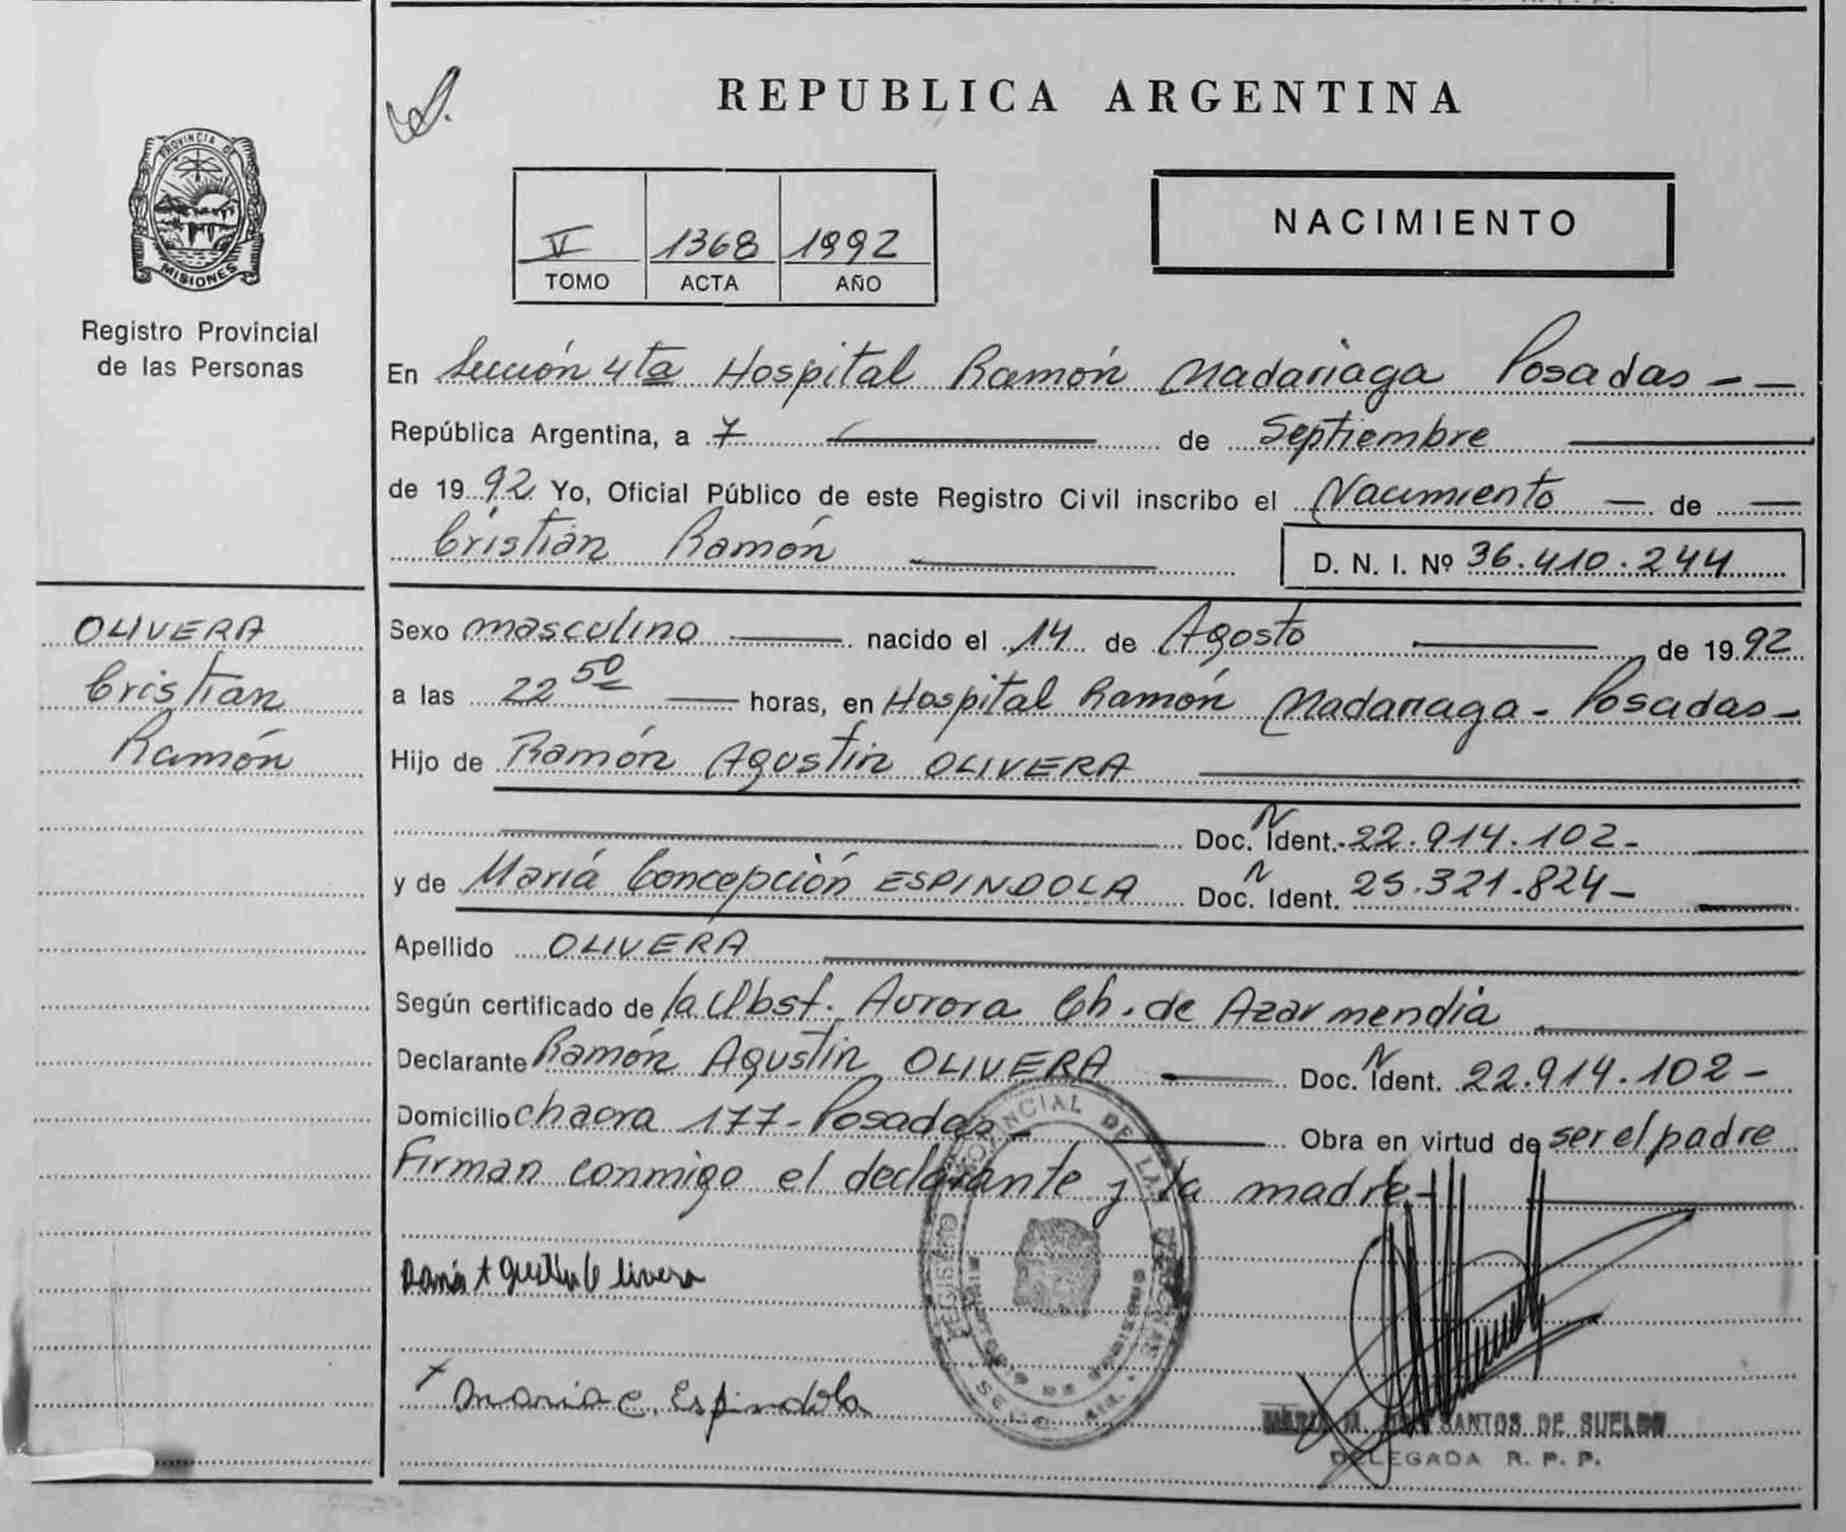 REPUBLICA ARGENTINA
PROVINCIA DE
MISIONES
Registro Provincial
de las Personas
V 1368 1992
TOMO ACTA AÑO
NACIMIENTO
En Sección 4ta Hospital Ramón Madariaga Posadas - -
República Argentina, a 7 de Septiembre
de 1992 Yo, Oficial Público de este Registro Civil inscribo el Nacimiento — de —
Cristian Ramón
D. N. I. Nº 36.410.244
OLIVERA
Cristian
Ramón
Sexo masculino nacido el 14 de Agosto de 1992
a las 22 50 horas, en Hospital Ramón Madariaga - Posadas -
Hijo de Ramón Agustin OLIVERA
Doc. N Ident. 22.914.102-
y de María Concepción ESPINDOLA Doc. N Ident. 25.321.824-
Apellido OLIVERA
Según certificado de la Obst. Aurora Ch. de Azarmendia
Declarante Ramón Agustin OLIVERA Doc. N Ident. 22.914.102-
Domicilio chacra 177- Posadas - Obra en virtud de ser el padre
Firman conmigo el declarante y la madre-
REGISTRO PROVINCIAL DE LAS PERSONAS
Maria C. Espindola
SANTOS DE SUELDO
DELEGADA R. P. P.